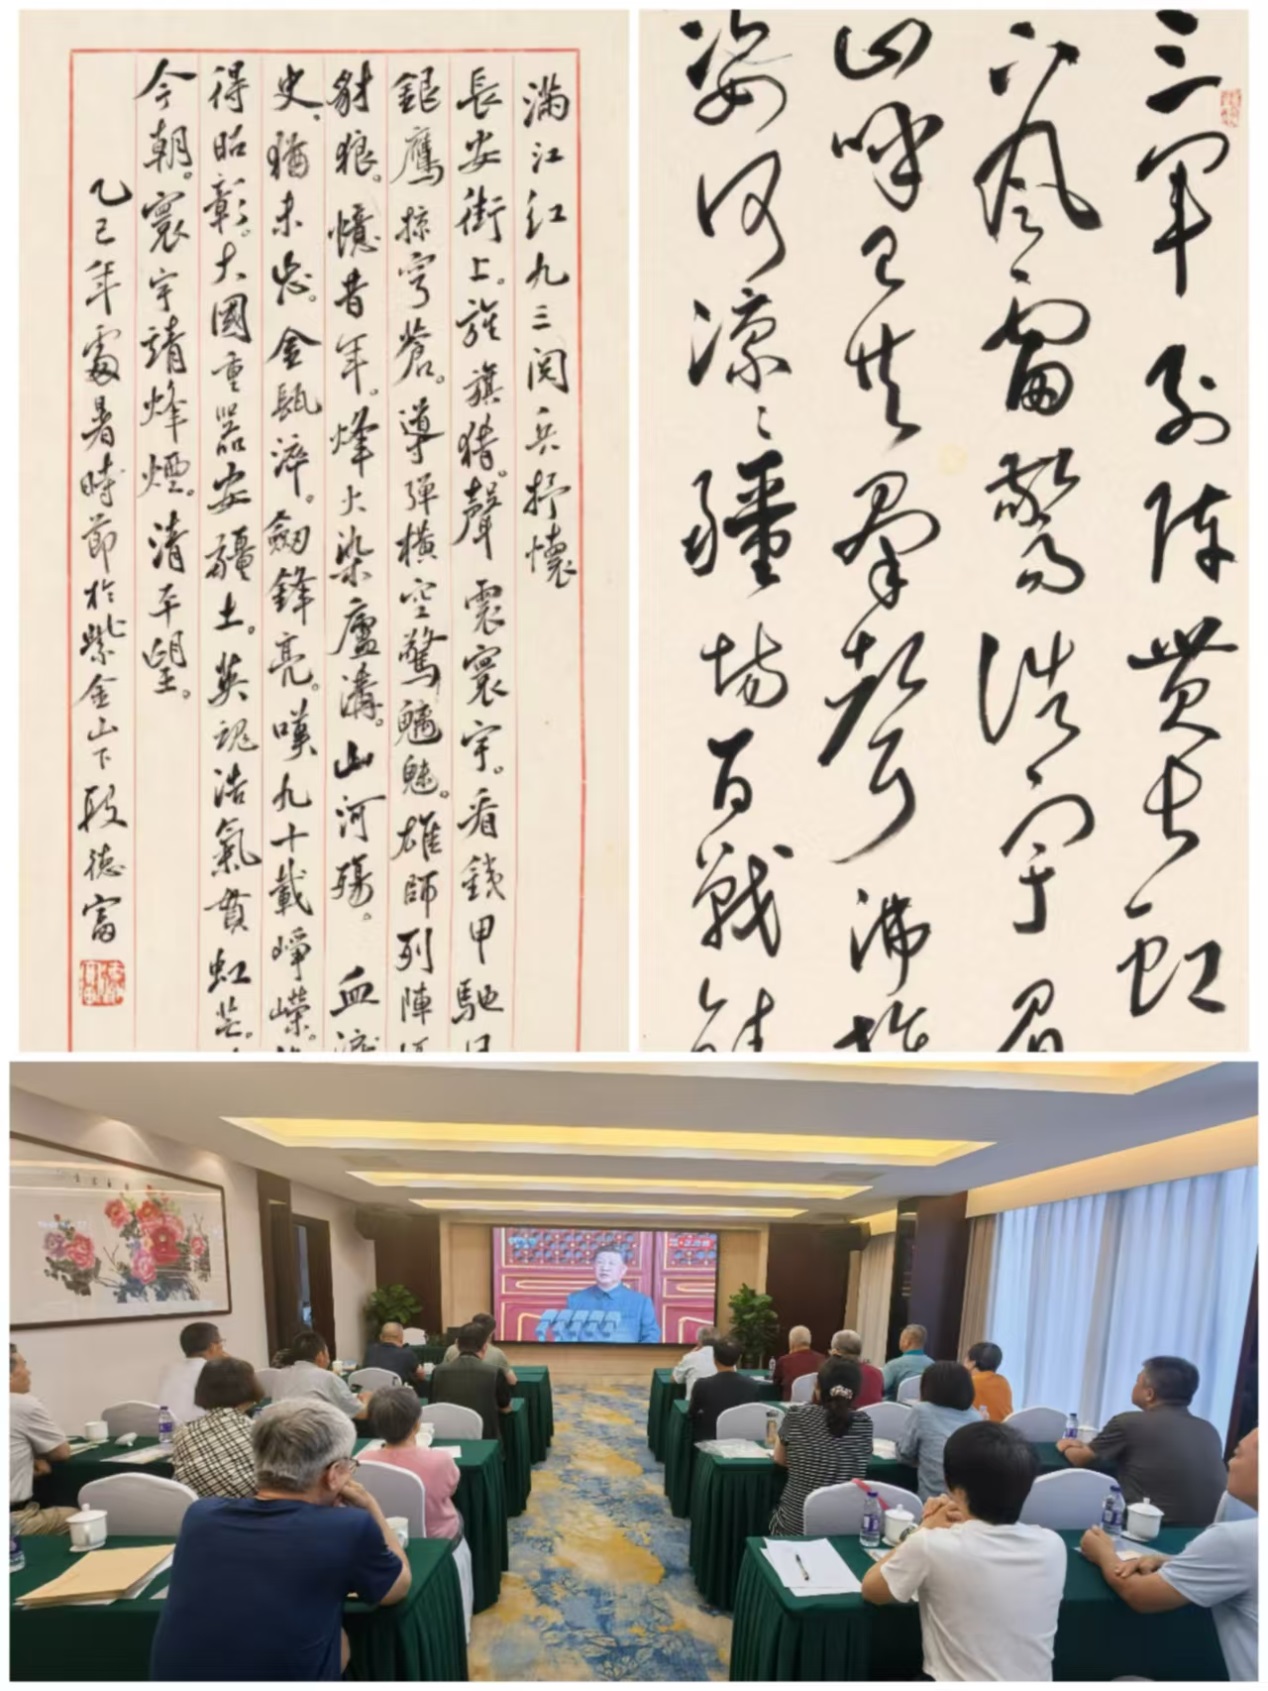 满江红九三阅兵抒懷
長安街上。旌旗猎。聲震寰宇。看鐵甲馳
銀鷹掠穹蒼。導弹横空驚魑魅。雄師列陣
豺狼。憶昔年。烽火染廬溝。山河殇。血
史、猶未忘。金甌淬。劍鋒亮。嘆九十載崢嶸。
得昭彰。大國重器安疆土。英魂浩氣貫虹芒。
今朝。寰宇靖烽煙。清平望。
乙巳年處暑時節於紫金山下段德富
三軍列陣貫長虹
風雷驚浩宇
山呼群聲沸
姿何凛凛疆场百戰